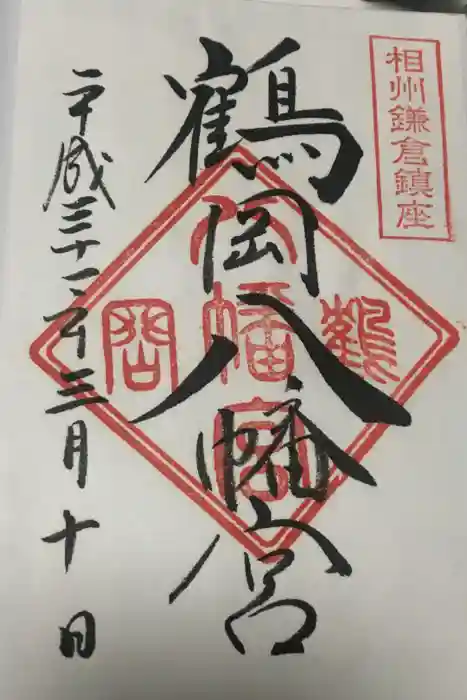 相州鎌倉鎮座
鶴岡八幡宮
鶴
八幡宮
岡
平成三十一年三月十日